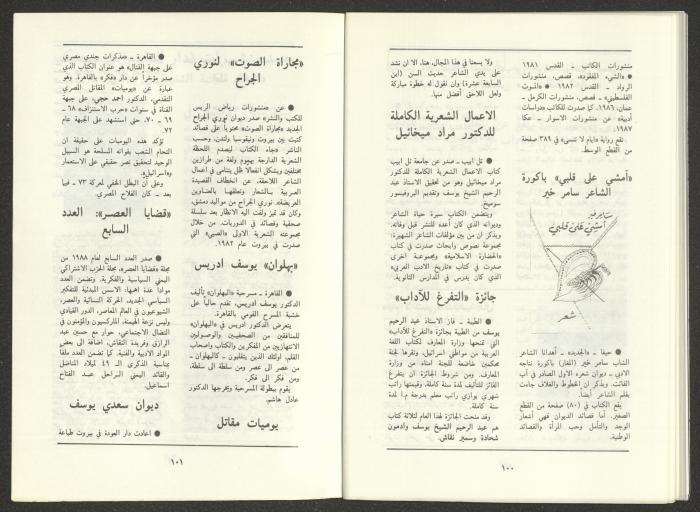 منشورات الكاتب - القدس ١٩٨١
● «الشيء المفقود»، قصص، منشورات
الرواد - القدس ١٩٨٢ ●
الفلسطيني» - قصص، منشورات الكرمل -
عمان، ١٩٨٦. كما صدرت للكاتب «دراسات
أدبية» عن منشورات الاسوار - عكا
١٩٨٧.
تقع رواية «ايام لا تنسى» في ٣٨٩ صفحة
من القطع الوسط.
«أمشي على قلبي» باكورة
الشاعر سامر خير
سامر خير
أمشي على قلبي
شعر
● حيفا - «الجديد» - أهدانا الشاعر
الشاب سامر خير (المغار) باكورة نتاجه
الأدبي - ديوان شعره الاول الصادر في آب
الفائت. ويذكر ان الخطوط والغلاف جاءت
بقلم الشاعر أيضا.
يقع الكتاب في (٨٠) صفحة من القطع
الصغير. أما قصائد الديوان فهي أشعار
الوجد والتأمل وحب المرأة والقصائد
الوطنية.
ولا يسعنا في هذا المجال، هنا، الا ان نشد
على يدي الشاعر حديث السن (ابن
السابعة عشرة) وان نقول له خطوة مباركة
ولعل اللاحق أفضل منها.
الاعمال الشعرية الكاملة
للدكتور مراد ميخائيل
● تل ابيب - صدر عن جامعة تل ابيب
كتاب الاعمال الشعرية الكاملة للدكتور
مراد ميخائيل وهو من تحقيق الاستاذ عبد
الرحيم الشيخ يوسف وتقديم البروفيسور
سوميخ.
ويتضمن الكتاب سيرة حياة الشاعر
وديوانه الذي كان أعده للنشر قبل وفاته.
ويذكر ان من بين مؤلفات الشاعر الشهيرة،
مجموعة نصوص وابحاث صدرت في كتاب
«الحضارة الاسلامية» ومجموعة اخرى
صدرت في كتاب «تاريخ الادب العربي»
الذي كان يدرس في المدارس الثانوية.
جائزة «التفرغ للآداب»
● الطيبة - فاز الاستاذ عبد الرحيم
يوسف من الطيبة بجائزة «التفرغ للآداب»
التي تمنحها وزارة المعارف لكتاب اللغة
العربية من مواطني اسرائيل، وتقرها لجنة
محكمين خاضعة للجنة امناء من وزارة
المعارف. ومن شروط الجائزة ان يتفرغ
الفائز للتأليف لمدة سنة كاملة، وقيمتها راتب
شهري يوازي راتب معلم بدرجة م.ا لمدة
سنة كاملة.
وقد منحت الجائزة لهذا العام لثلاثة كتاب
هم عبد الرحيم الشيخ يوسف وادمون
شحادة وسمير نقاش.
١٠٠
«مجاراة الصوت» لنوري
الجراح
● عن «منشورات رياض الريس
للكتب والنشر» صدر ديوان نوري الجراح
الجديد «مجاراة الصوت» محتويا على قصائد
كتبت بين بيروت ونيقوسيا ولندن، وحسب
الناشر «جاء الكتاب ليصدم اللحظة
الشعرية الدارجة بهموم ولغة من طرازين
مختلفين ويشكل انفعالا ظل ينتامى في اعمال
الشاعر اللاحقة، عن انعطاف القصيدة
العربية بالشعار وتعلقها بالعناوين
العريضة». نوري الجراح من مواليد دمشق،
وكان قد تميز ولفت اليه الانظار بعد سلسلة
صحفية وقصائد في الدوريات، من خلال
مجموعته الشعرية الاولى «الصبي» التي
صدرت في بيروت عام ١٩٨٢.
«بهلوان» يوسف ادريس
● القاهرة - مسرحية «البهلوان» تأليف
الدكتور يوسف ادريس، تقدم حاليا على
خشبة المسرح القومي بالقاهرة.
يتعرض الدكتور ادريس في «البهلوان»
للمنافقين من الصحفيين والوصوليين
الانتهازيين من المفكرين والكتاب واصحاب
القلم، أولئك الذين يتقلبون - كالبهلوان -
من عصر الى عصر ومن سلطة الى سلطة،
ومن فكر الى فكر.
يقوم ببطولة المسرحية ويخرجها الدكتور
عادل هاشم.
يوميات مقاتل
● القاهرة - «مذكرات جندي مصري
على جبهة القتال» هو عنوان الكتاب الذي
صدر مؤخرا عن دار «فكر» بالقاهرة. وهو
عبارة عن «يوميات» المقاتل المصري
التقدمي، الدكتور احمد حجي، على جبهة
القناة في سنوات «حرب الاستنزاف» ٦٨ -
٦٩ - ٧٠، حتى استشهد على الجبهة عام
٧٢.
تؤكد هذه اليوميات على حقيقة ان
التحام الشعب بقواته المسلحة هو السبيل
الوحيد لتحقيق نصر حقيقي على الاستعمار
و«اسرائيل».
وعلى أن البطل الحقيقي لمعركة ٧٣ - فيما
بعد - كان الفلاح المصري.
«قضايا العصر»: العدد
السابع
● صدر العدد السابع لعام ١٩٨٨ من
مجلة «قضايا العصر»، مجلة الحزب الاشتراكي
اليمني السياسية والفكرية. وتضمن العدد
مواداً عدة اهمها: الاسس المبدئية للتفكير
السياسي الجديد، الحركة النسائية والعصر،
الشيوعيون في العالم المعاصر، الدور القيادي
وليس نزعة الهيمنة، الماركسيون والمؤمنون في
النضال الاجتماعي، حوار مع حسين عبد
الرازق وفريدة النقاش، اضافة الى بعض
المواد الادبية والفنية. كما تضمن العدد ملفا
بمناسبة الذكرى الـ ٤٩ لميلاد المناضل
والقائد اليمني الراحل عبد الفتاح
اسماعيل.
ديوان سعدي يوسف
● اعادت دار العودة في بيروت طباعة
١٠١